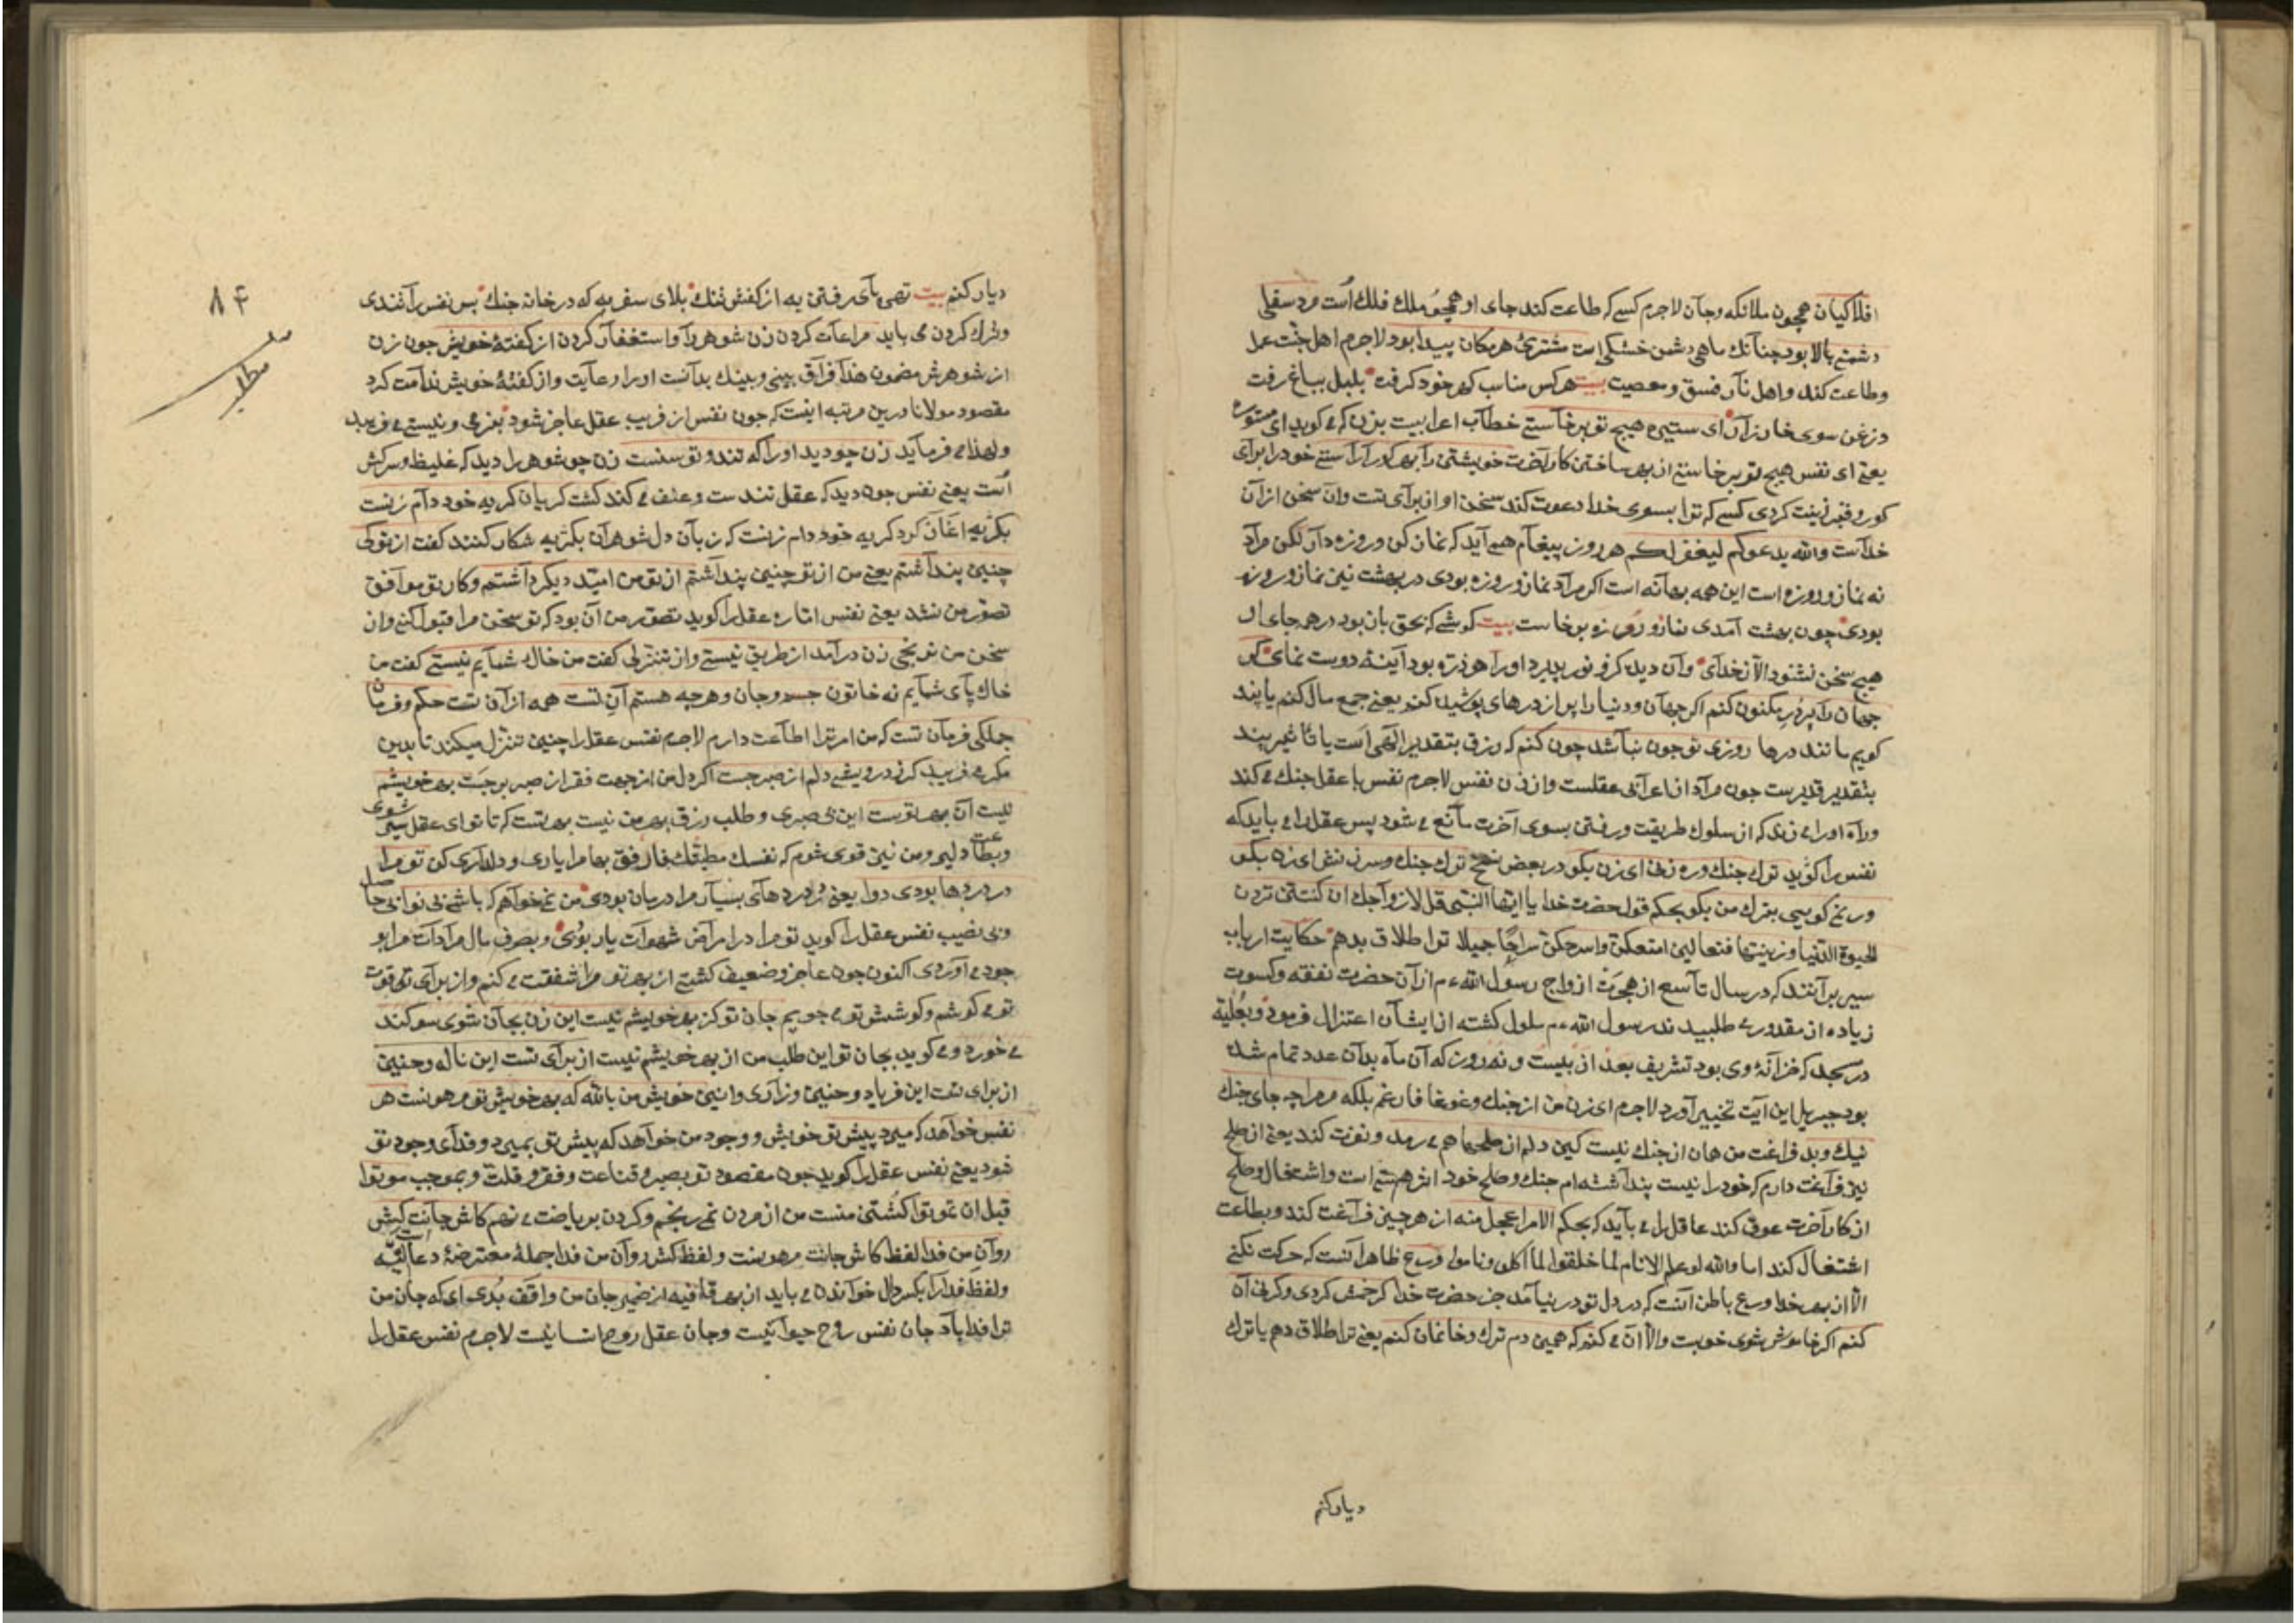 افلاکیان همچون ملائکه وجان لاجرم کسیکه طاعت کند جای او همچو ملك فلك است مرد سفلی
دشمن بالا بود چنانك ماهی دشمن خشکی است مشتری هر مکان پیدا بود لاجرم اهل جنت عمل
وطاعت کند واهل نار فسق ومعصیت بیت هرکس مناسب کهر خود کرفت بلبل بباغ رفت
وزغن سوی خان زار ای ستیره هیچ تو برخاستی خطاب اعرابیست بزن که می کوید ای مستوره
یعنی ای نفس هیچ تو برخاستی از بهر ساختن کار آخرت خویشتن را بهر کور آراستی خود را برای
کور وقبر زینت کردی کسی که ترا بسوی خدا دعوت کند سخن او از برای تست وان سخن از آن
خداست والله یدعوکم لیغفر لکم هر روز پیغام همی آید که نماز کن وروزه دار لکن مراد
نه نماز وروزه است این همه بهانه است اکر مراد نماز وروزه بودی در بهشت نیز نماز وروزه
بودی چون بهشت آمدی نماز وروزه برخاست بیت کوشی که بحق باز بود در همه جای از
هیچ سخن نشنود الا ز خدای وآن دیده کزو نور پذیرد اورا هر ذره بود آینهٔ دوست نمای کر
جهان را پر در مکنون کنم اکر جهان ودنیا را پر از درهای پوشیده کنم یعنی جمع مال کنم یا پند
کویم مانند درها روزی تو چون نباشد چون کنم که رزق بتقدیر الهی است یا تاثیر پند
بتقدیر قدیرست چون مراد از اعرابی عقلست واز زن نفس لاجرم نفس با عقل جنك می کند
وراه اورا می زند که از سلوك طریقت ورفتن بسوی آخرت مانع می شود پس عقل را می باید که
نفس را کوید ترك جنك وره زنی ای زن بکو در بعض نسخ ترك جنك وسرزنش ای زن بکو
ور نمی کویی بترك من بکو بحکم قول حضرت خدا یا ایها النبی قل لازواجك ان کنتن تردن
الحیوة الدنیا وزینتها فتعالین امتعکن واسرحکن سراحا جمیلا ترا طلاق بدهم حکایت ارباب
سیر برآنند که در سال تاسع از هجرت ازواج رسول الله ءم از آن حضرت نفقه وکسوت
زیاده از مقدور می طلبیدند رسول الله ءم ملول کشته از ایشان اعتزال فرمود وبعلیه
در مسجد که خزانهٔ وی بود تشریف بعد از بیست ونه روز که آن ماه بدان عدد تمام شده
بود جبریل این آیت تخییر آورد لاجرم ای زن من از جنك وغوغا فارغم بلکه مر مرا چه جای جنك
نیك وبد فراغت من همان از جنك نیست کین دلم از صلحها هم می رمد ونفرت کند یعنی از صلح
نیز فراغت دارم که خود را نیست پنداشته ام جنك وصلح خود اثر هستی است واشتغال وصلح
از کار آخرت عوق کند عاقل را می باید که بحکم الامر اعجل منه از هر چیز فراغت کند وبطاعت
اشتغال کند اما والله لو علم الانام لما خلقوا لما اکلوا وناموا ورع ظاهر آنست که حرکت نکنی
الا از بهر خدا وورع باطن آنست که در دل تو در نیامد جز حضرت خدا کر خمش کردی وکرنی آن
کنم اکر خاموش شوی خوبست والا آن می کنم که همین دم ترك وخانمان کنم یعنی ترا طلاق دهم یا ترك
دیار کنم
۸۴
مطلب
دیار کنم بیت تهی پای رفتن به از کفش تنك بلای سفر به که در خانه جنك پس نفس را تندی
وترك کردن می باید مراعات کردن زن شوهر را واستغفار کردن از کفتهٔ خویش چون زن
از شوهرش مضمون هذا فراق بینی وبینك بدانست اورا رعایت واز کفتهٔ خویش ندامت کرد
مقصود مولانا درین مرتبه اینست که چون نفس از فریب عقل عاجز شود بنرمی ونیستی می فریبد
ولهذا می فرماید زن چو دید اورا که تند وتوسنست زن چو شوهر را دید که غلیظ وسرکش
است یعنی نفس چون دید که عقل تندست وعنف می کند کشت کریان کریه خود دام زنست
بکریه اغاز کرد کریه خود دام زنست که زنان دل شوهران بکریه شکار کنند کفت از تو کی
چنین پنداشتم یعنی من از تو چنین پنداشتم از تو من امید دیکر داشتم وکار تو موافق
تصور من نشد یعنی نفس اماره عقل را کوید تصور من آن بود که تو سخن مرا قبول کنی وان
سخن من نرنجی زن درآمد از طریق نیستی واز تنزلی کفت من خاك شمایم نیستی کفت من
خاك پای شمایم نه خاتون جسم وجان وهر چه هستم آن تست همه از آن تست حکم وفرمان
جملکی فرمان تست که من امر ترا اطاعت دارم لاجرم نفس عقل را چنین تنزل میکند تا بدین
مکر می فریبد کر ز درویشی دلم از صبر جست اکر دل من از جهت فقر از صبر برجست بهر خویشم
نیست آن بهر توست این بی صبری وطلب رزق بهر من نیست بهر تست که تا تو ای عقل سیر شوی
وبطاعت دلیر ومن نیز قوی شوم که نفسك مطیتك فارفق بها مرا یاری ودلداری کن تو مرا
در دردها بودی دوا یعنی در دردهای بسیار مرا درمان بودی من نمی خواهم که باشی بی نوا بی حاصل
وبی نصیب نفس عقل را کوید تو مرا در امراض شهوات یار بودی وبصرف مال مرادات مرا بو
جود می آوردی اکنون چون عاجز وضعیف کشتی از بهر تو مرا شفقت می کنم واز برای تو قوت
تو می کوشم وکوشش تو می جویم جان تو کز بهر خویشم نیست این زن بجان شوی سوکند
می خورد ومی کوید بجان تو این طلب من از بهر خویشم نیست از برای تست این ناله وحنین
از برای تست این فریاد وحنین وزاری وانین خویش من بالله که بهر خویش تو مرهونست هر
نفس خواهد که میرد پیش تو خویش ووجود من خواهد که پیش تو بمیرد وفدای وجود تو
شود یعنی نفس عقل را کوید چون مقصود تو بصبر وقناعت وفقر وقلت وبموجب موتوا
قبل ان تموتوا کشتن منست من از مردن نمی رنجم وکردن بر ریاضت می نهم کاش جانت کش
روان من فدا لفظ کاش جانت مرهونست ولفظ کش روان من فدا جملهٔ معترضهٔ دعائیه است
ولفظ فدا را بکسر دال خواندن می باید از بهر قافیه از ضمیر جان من واقف بدی ای که جان من
ترا فدا باد جان نفس روح حیوانیست وجان عقل روح انسانیست لاجرم نفس عقل را